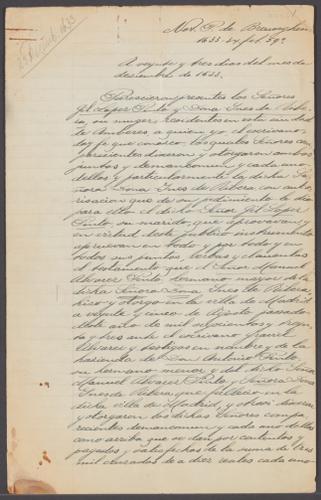 25 Agosto 1633
Not. P. de Breuseghem
1633. 24 fol. 39º
A veynte y tres dias del mes de
diciembre de 1633.
Parescieron presentes los Señores
Gil Lopez Pinto y Dona Ines de Ribe-
ra, su muger, residentes en esta ciudad
de Amberes, a quien yo el escrivano
doy fe que conosco, los quales Señores com-
parescientes dixeron y otorgaron ambos
juntos y demancomun y cada uno
dellos y particularmente la dicha Se-
ñora Dona Ines de Ribera con auto-
risacion que de su pedimiento le dio
para ello el dicho Señor Gil Lopez
Pinto, su marido, que aprovavan y
en virtud deste publico instrumento
aprueven en todo y por todo y en
todos sus puntos, verbas y clausulas
el testamento que el Señor Manuel
Alvarez Pinto, hermano mayor de la
dicha Señora Dona Ines de Ribera
hizo y otorgo en la villa de Madrid
a veynte y cinco de Agosto pasado
deste año de mil seyscientos y treyn-
ta y tres ante el escrivano Gabriel
Alvarez y tambien en nombre y de la
hacienda de Don Antonio Pinto,
su hermano menor y del dicho Señor
Manuel Alvarez Pinto y Señora Dona
Ines de Ribera que fallecio en la
dicha villa de Madrid y assi dixeron
y otorgaron los dichos Señores compa-
recientes demancomun y cada uno dellos
como arriba que se dan por contentos y
pagados y satisfechos de la suma de tres
mil cruzados de a diez reales cada uno